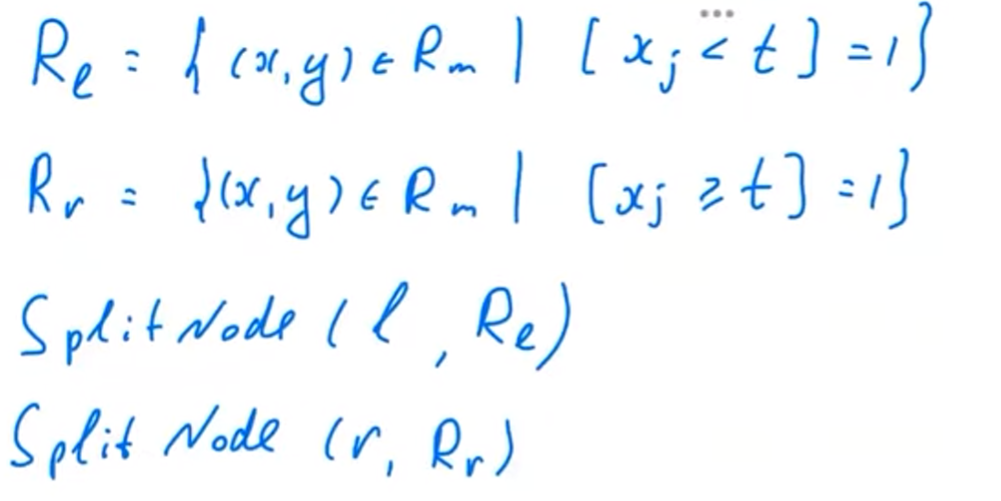 R_l = {(x,y) ∈ R_m | [x_j < t] = 1}
R_r = {(x,y) ∈ R_m | [x_j ⩾ t] = 1}
SplitNode (l, R_l)
Split Node (r, R_r)